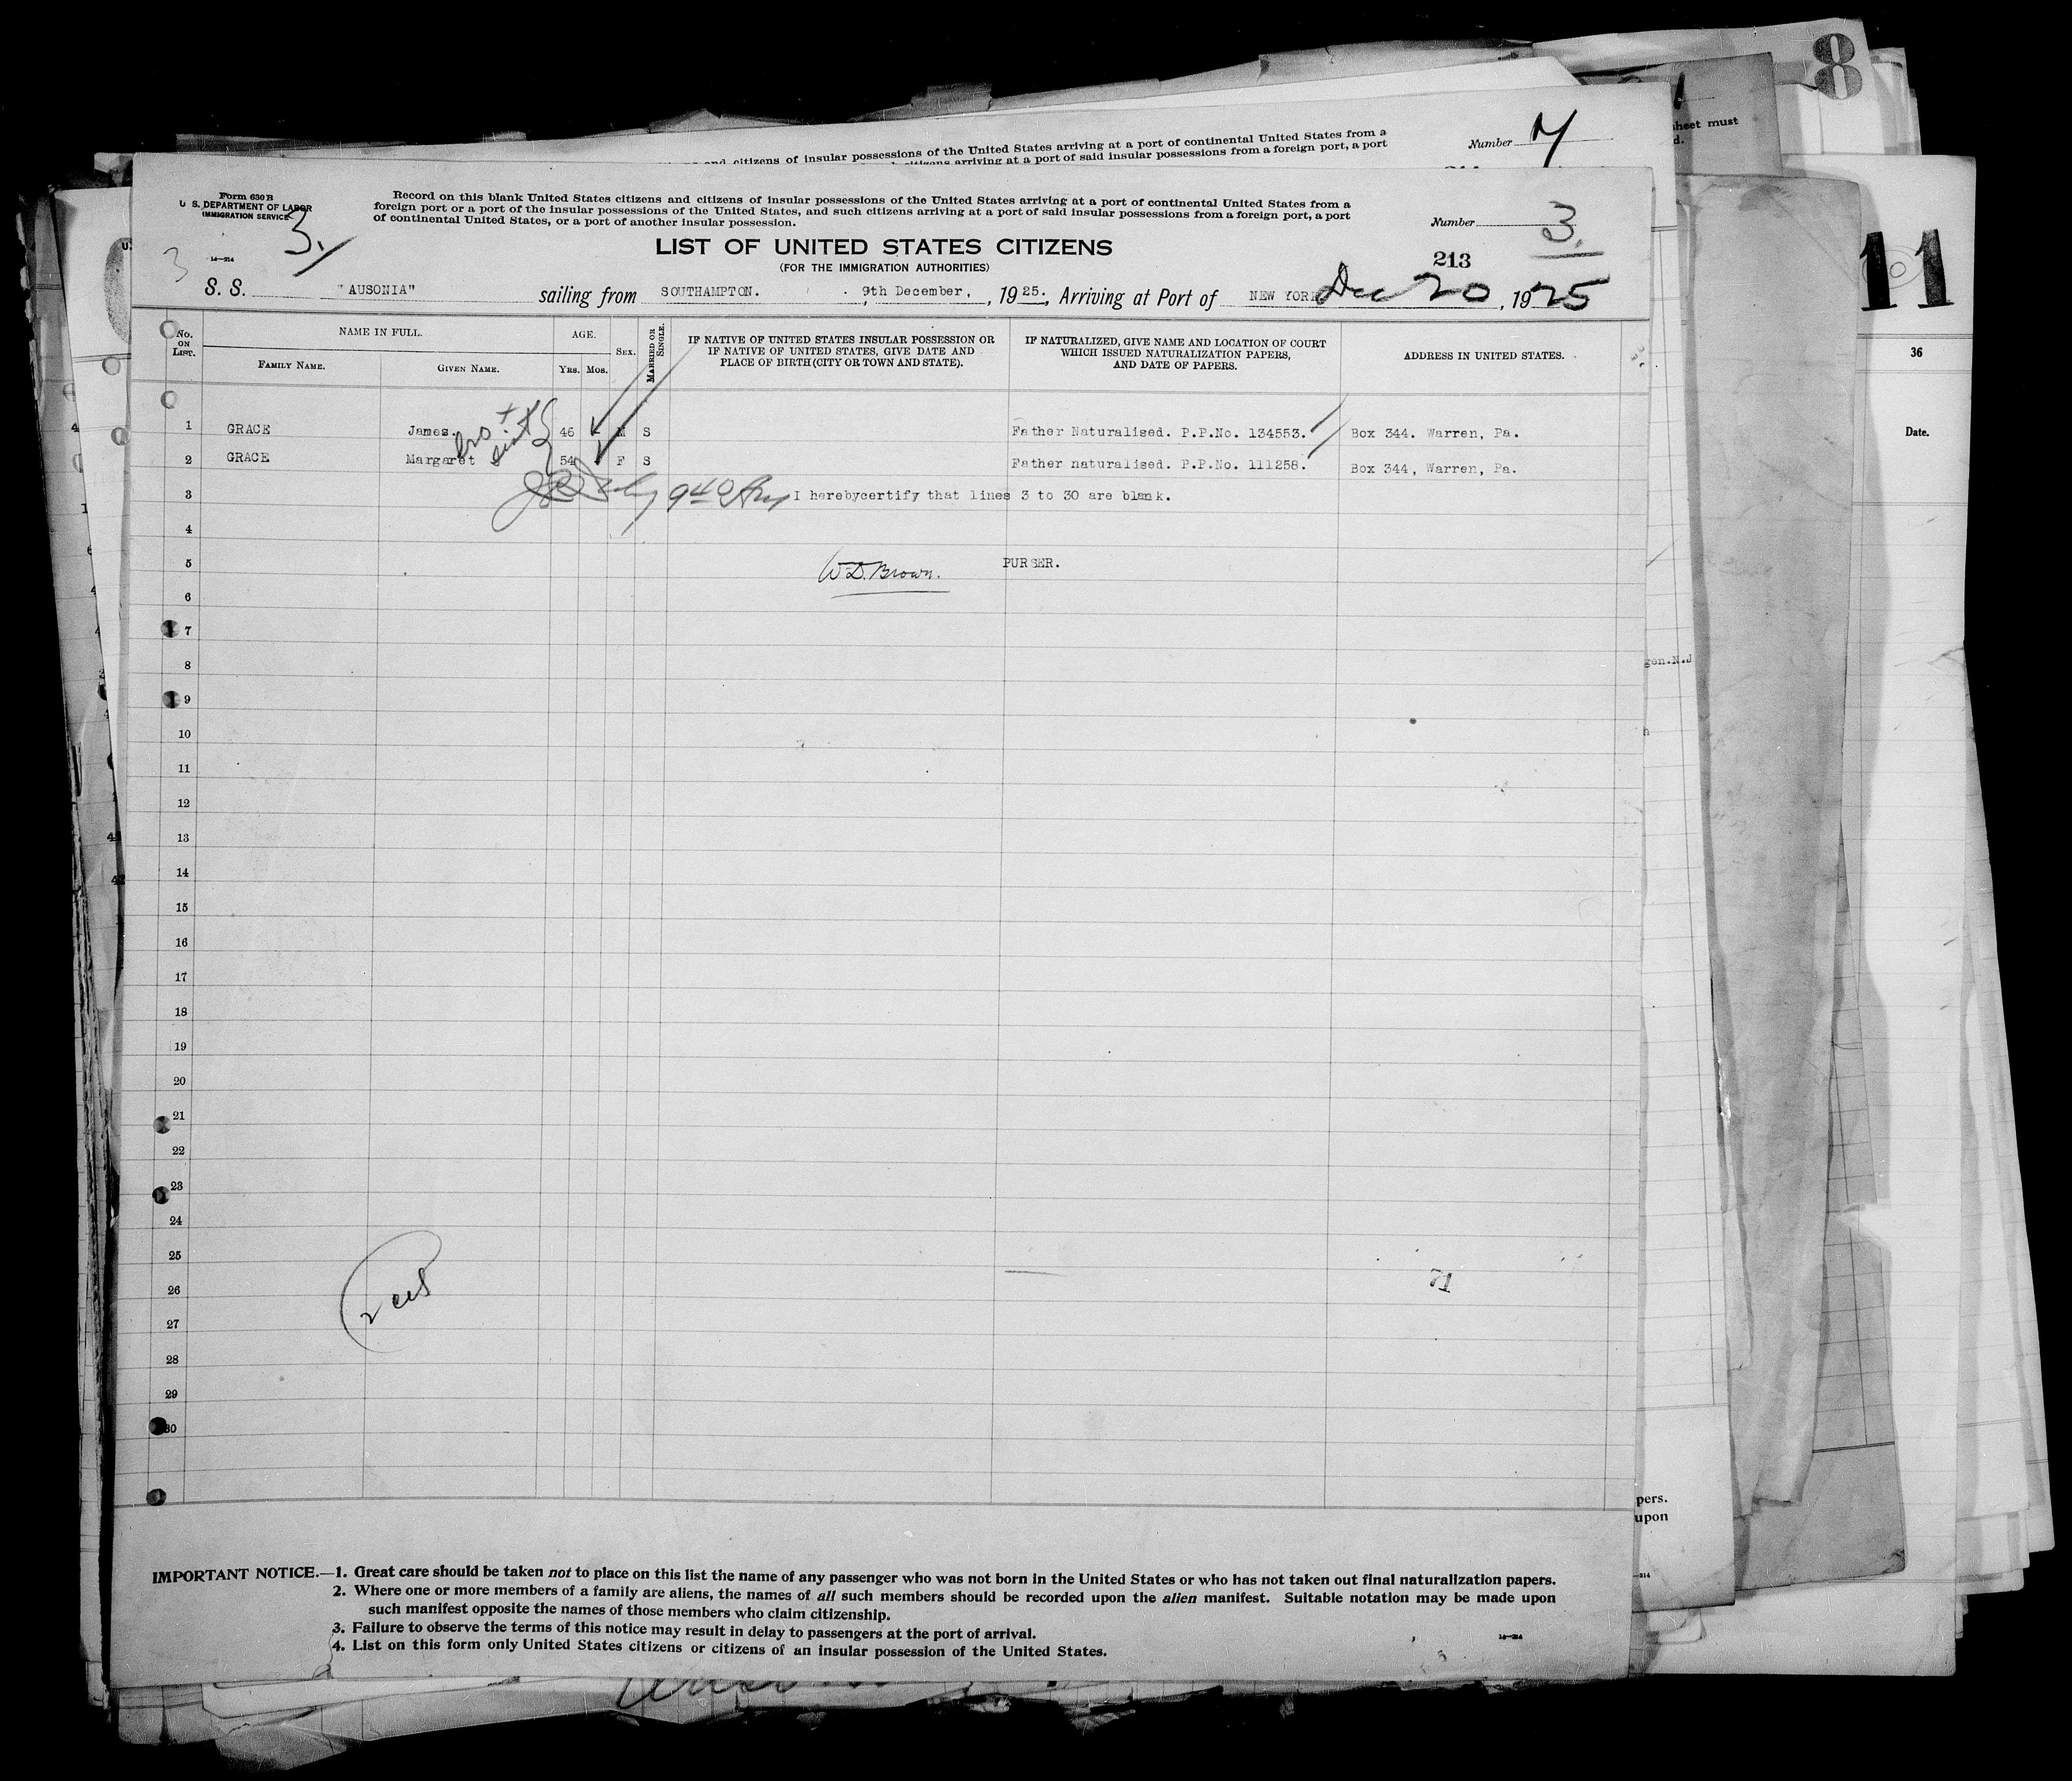 8
sheet must
d.
and citizens of insular possessions of the United States arriving at a port of continental United States from a
citizens arriving at a port of said insular possessions from a foreign port, a port
Number 4
Form 630 B
U. S. DEPARTMENT OF LABOR
IMMIGRATION SERVICE
14—214
3.
3
Record on this blank United States citizens and citizens of insular possessions of the United States arriving at a port of continental United States from a
foreign port or a port of the insular possessions of the United States, and such citizens arriving at a port of said insular possessions from a foreign port, a port
of continental United States, or a port of another insular possession.
Number 3.
LIST OF UNITED STATES CITIZENS
(FOR THE IMMIGRATION AUTHORITIES)
213
11
S. S. "AUSONIA" sailing from SOUTHAMPTON. , 9th December, , 1925., Arriving at Port of NEW YORK Dec 20, 1925
No. ON LIST.
NAME IN FULL.
FAMILY NAME.
GIVEN NAME.
AGE.
YRS.
MOS.
SEX.
MARRIED OR SINGLE.
IF NATIVE OF UNITED STATES INSULAR POSSESSION OR
IF NATIVE OF UNITED STATES, GIVE DATE AND
PLACE OF BIRTH (CITY OR TOWN AND STATE).
IF NATURALIZED, GIVE NAME AND LOCATION OF COURT
WHICH ISSUED NATURALIZATION PAPERS,
AND DATE OF PAPERS.
ADDRESS IN UNITED STATES.
36
Date.
1 GRACE James. 46 - M S Father Naturalised. P.P.No. 134553. Box 344. Warren, Pa.
bro +
sist
2 GRACE Margaret 54 F S Father naturalised. P.P.No. 111258. Box 344, Warren, Pa.
3 I herebycertify that lines 3 to 30 are blank.
4
5 W.D. Brown. PURSER.
6
7
8
gen.N.J
9
10
11
12
13
14
15
16
17
18
19
20
21
22
23
24
25
26
27
28
29
30
2 cus
pers.
upon
IMPORTANT NOTICE.—1. Great care should be taken not to place on this list the name of any passenger who was not born in the United States or who has not taken out final naturalization papers.
2. Where one or more members of a family are aliens, the names of all such members should be recorded upon the alien manifest. Suitable notation may be made upon
such manifest opposite the names of those members who claim citizenship.
3. Failure to observe the terms of this notice may result in delay to passengers at the port of arrival.
4. List on this form only United States citizens or citizens of an insular possession of the United States.
14—214